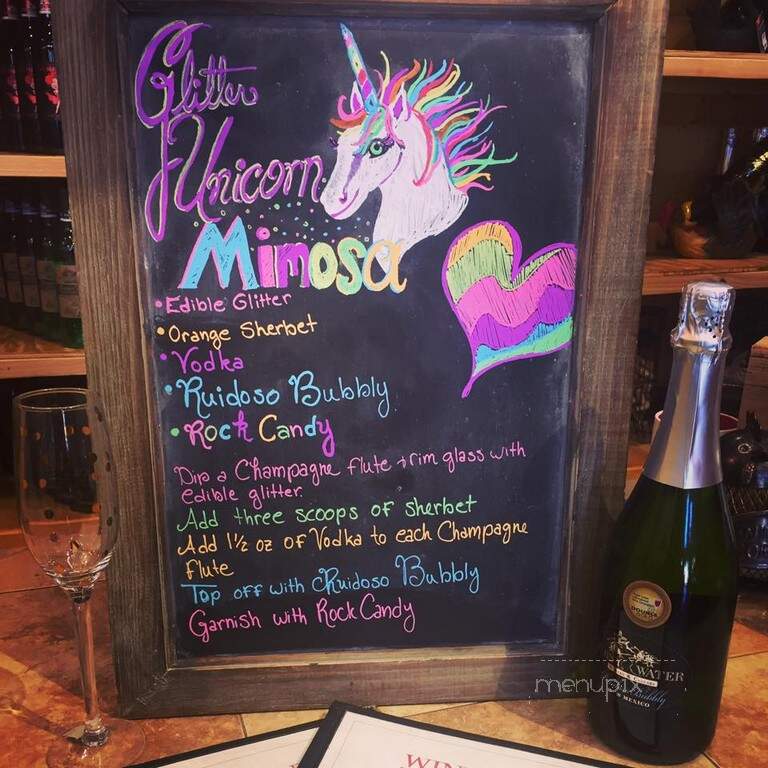 Glitter
Unicorn
Mimosa
• Edible Glitter
• Orange Sherbet
• Vodka
• Ruidoso Bubbly
• Rock Candy
Dip a Champagne flute + rim glass with
edible glitter.
Add three scoops of sherbet
Add 1½ oz of Vodka to each Champagne
flute
Top off with Ruidoso Bubbly
Garnish with Rock Candy
DOUBLE
WATER
bubbly
MEXICO
menupix
WIN